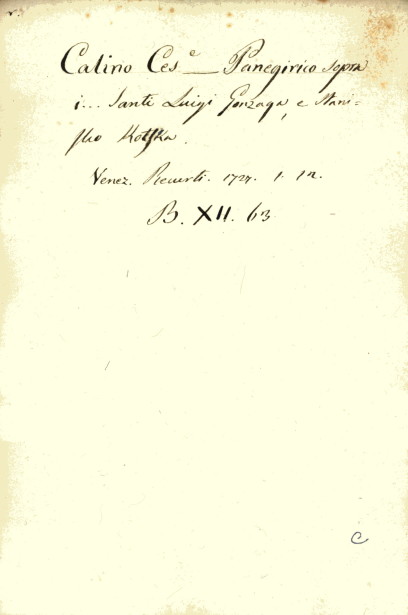 Calino Ces.e — Panegirico sopra
i... Santi Luigi Gonzaga, e Stani=
slao Kotska.
Venez. Recurti. 1727. 1. 12.
B. XII. 63
C